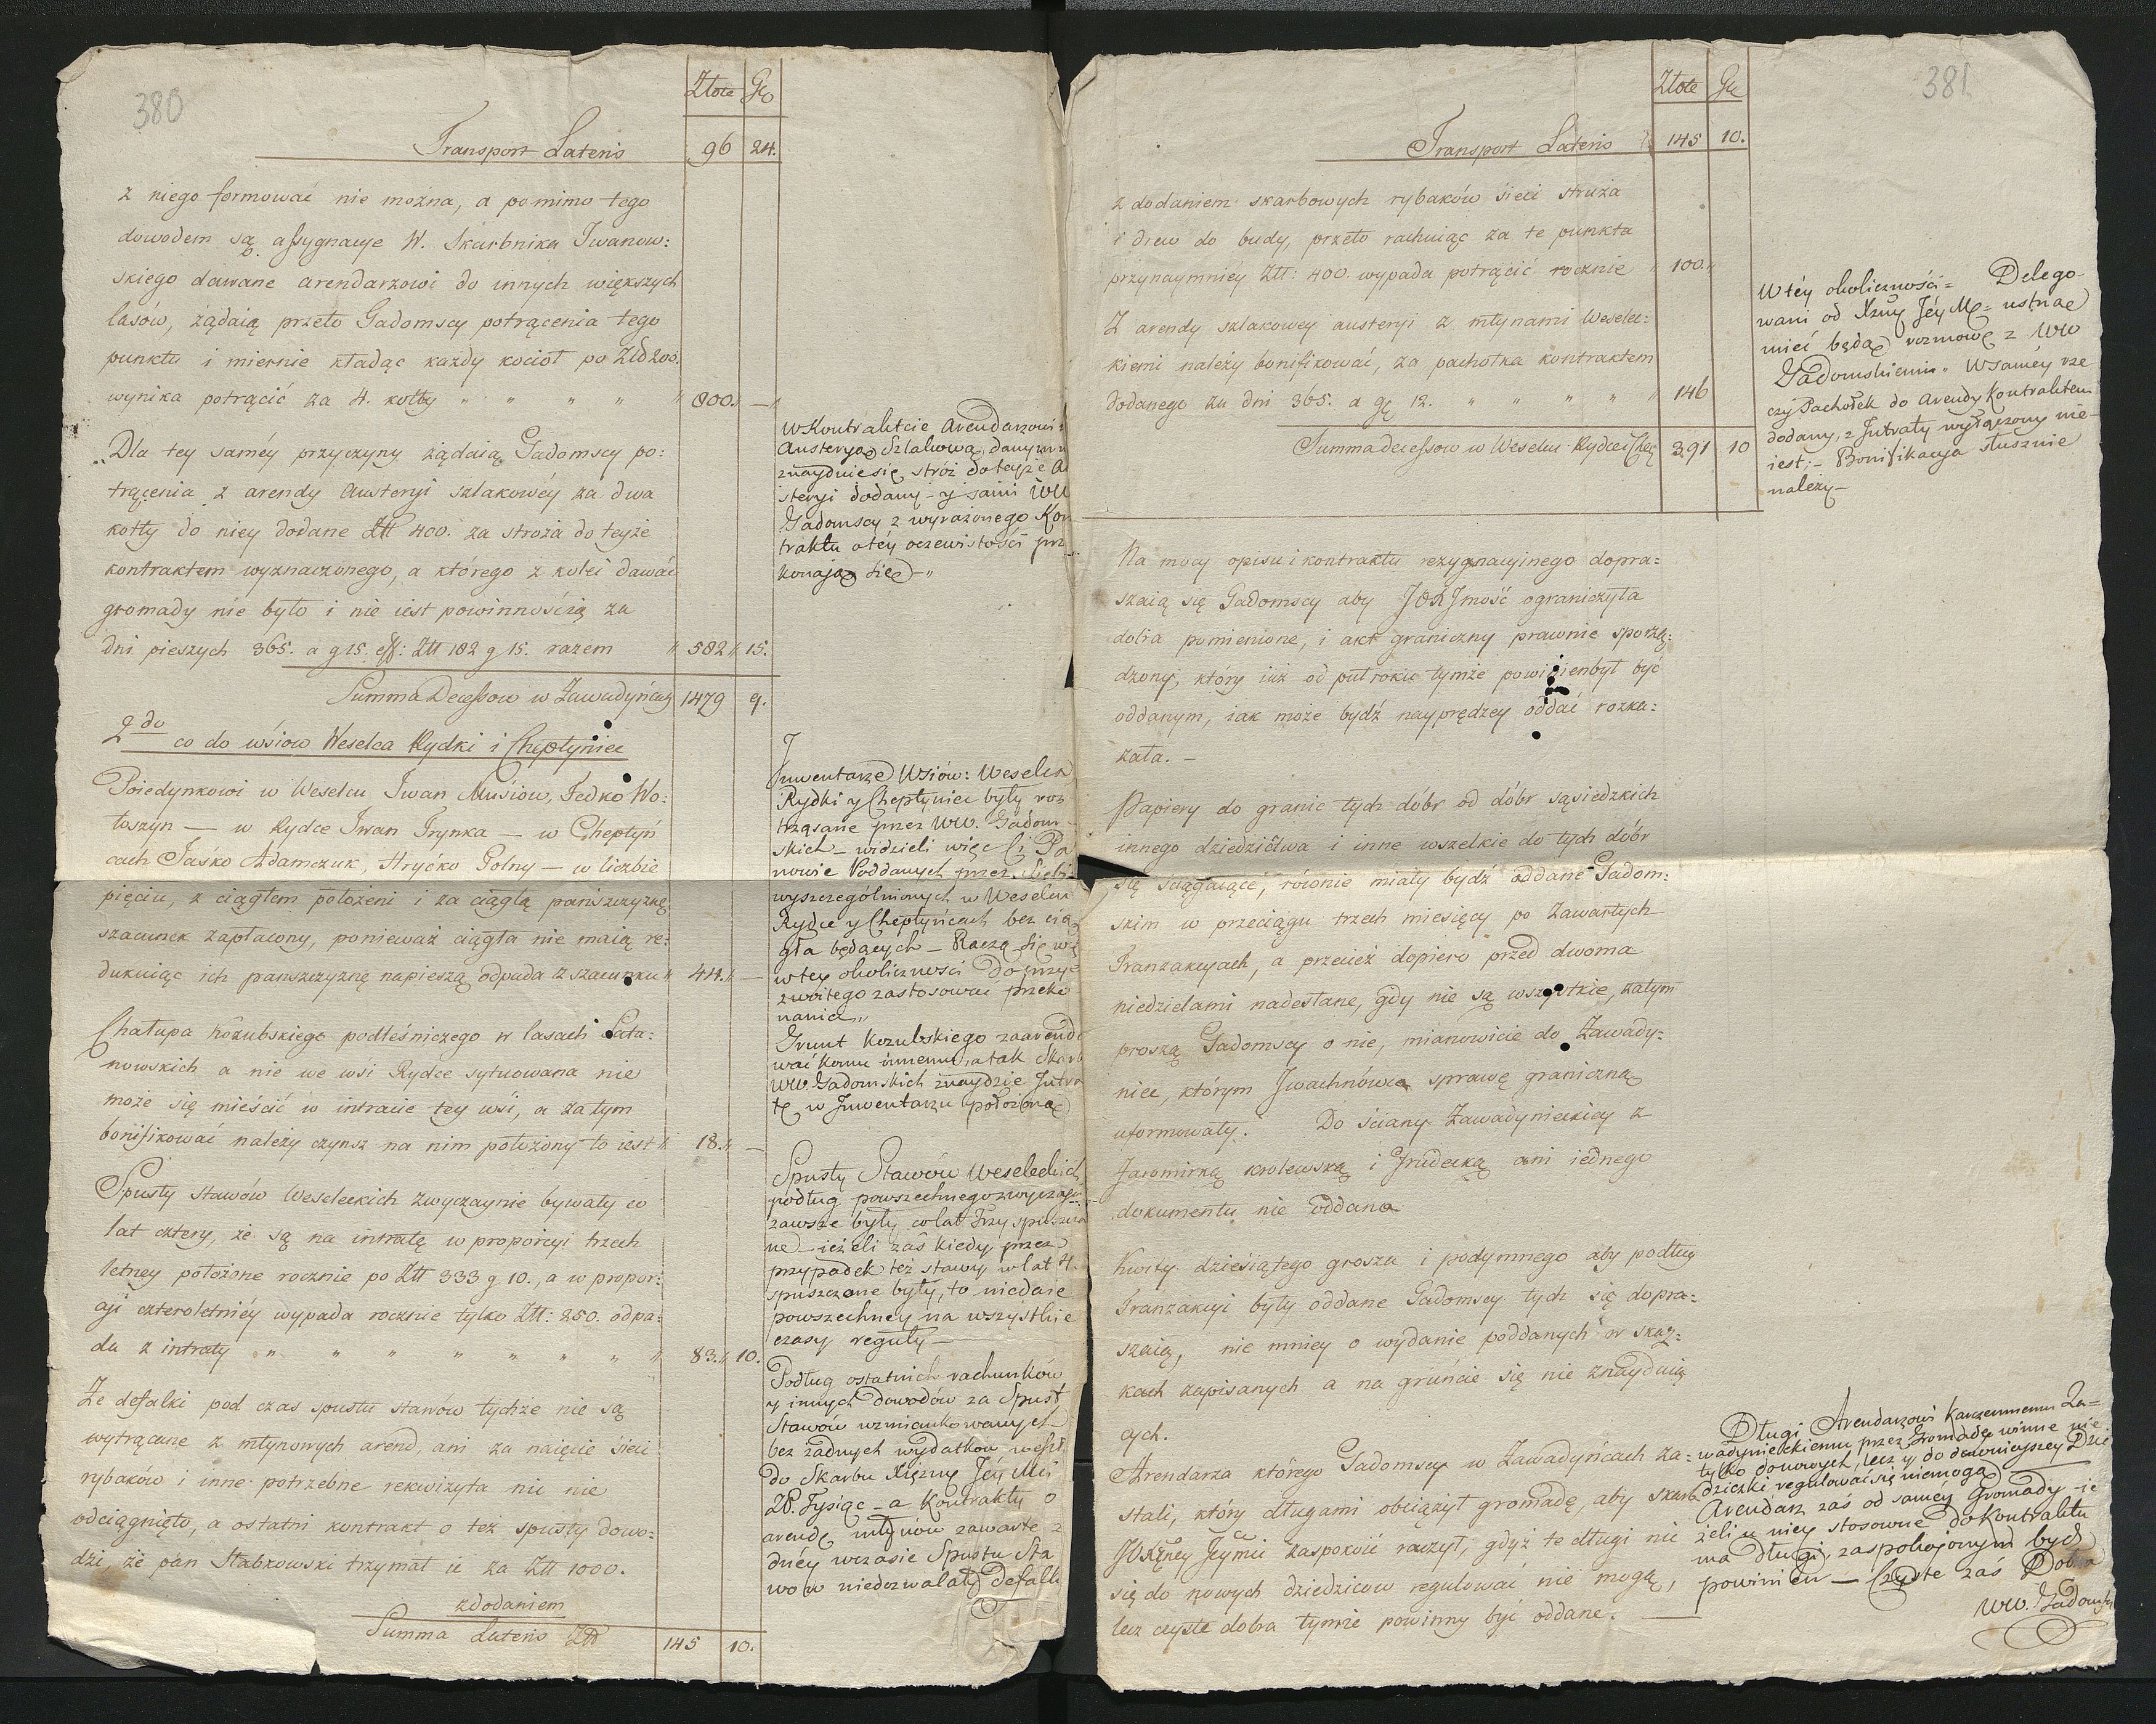 380
Złote Gr
Transport Lateris 96 24.
z niego formować nie można, a pomimo tego
dowodem są assygnacye W. Skarbnika Iwanow:
skiego dawane arendarzowi do innych większych
lasów, żądaią przeto Gadomscy potrącenia tego
punktu i miernie kładąc każdy kocioł po Złł 200.
wynika potrącić za 4. kotły " " " " " 800. —
Dla tey saméy przyczyny żądaią Gadomscy po:
trącenia z arendy Austeryi szlakowéy za dwa
kotły do niey dodane Złł 400. za stroża do teyże
kontraktem wyznaczonego, a którego z kolei dawać
gromady nie było i nie iest powinnością za
dni pieszych 365. a g 15. eff: Złł 182 g 15. razem " 582 " 15.
Summa Decessow w Zawadyńcach 1479 9.
2do co do wśiow Weselca Rydki i Cheptyniec
Poiedynkowi w Weselcu Iwan Musiow, Fedko Wo:
łoszyn — w Rydce Iwan Hrynka — w Cheptyń
cach Jaśko Adamczuk, Hryćko Golny — w liczbie
pięciu, z ciągłem położeni i za ciągłą pańszczyznę
szacunek zapłacony, ponieważ ciągła nie maią re:
dukuiąc ich panszczyznę na pieszą odpada z szacunku " 44. " —
Chałupa Kozubskiego podleśniczego w lasach Sata:
nowskich a nie we wsi Rydce sytuowana nie
może się mieścić w intracie tey wsi, a zatym
bonifikować należy czynsz na nim położony to iest " 18. " —
Spusty stawów Weseleckich zwyczaynie bywały co
lat cztery, że są na intratę w proporcyi trzech
letney położone rocznie po Złł 333 g 10., a w propor:
cyi czteroletniéy wypada rocznie tylko Złł: 250. odpa:
da z intraty " " " " " " " 83. " 10.
Że defalki pod czas spustu stawów tychże nie są
wytrącane z młynowych arend, ani za naięcie śieci
rybaków i inne potrzebne rekwizyta nic nie
odciągnięto, a ostatni kontrakt o też spusty dowo:
dzi, że pan Słabkowski trzymał ie za Złł 1000.
z dodaniem
Summa Lateris Złł 145 10.
W Kontrakcie Arendarzowi
Austeryą Szlakową danym
znayduie się stróż do teyże Au
steryi dodany — y sami WW
Gadomscy z wyrażonego Kon
traktu o téy oczewistości prze
konają się —"
Inwentarze Wsiów: Weselca
Rydki y Cheptyniec były roz
trząsane przez WW. Gadom
skich — widzieli więc Ci Pa
nowie Poddanych przez siebie
wyszczególnionych w Weselcu
Rydce y Cheptyńcach bez cią
gła będących — Raczą się więc
w tey okoliczności do przy
zwoitego zastosować przeko
nania"
Grunt Kozubskiego zaarendo
wać komu innemu, a tak Skarb
WW. Gadomskich znaydzie Intra
tę w Inwentarzu położoną
Spusty Stawów Weseleckich
podług powszechnego zwyczaju
zawsze były co lat Trzy spuszcza
ne — ieżeli zaś kiedy przez
przypadek też stawy w lat 4.
spuszczane były, to nie daie
powszechney na wszystkie
czasy reguły —
Podług ostatnich rachunków
y innych dowodów za Spust
Stawów wzmiankowanych
bez żadnych wydatków weszł.
do Skarbu Xiężny Jéy Mci
28. Tysiąc — a Kontrakty o
arendę młynów zawarte ża
dnéy w czasie Spustu Sta
wów niedozwalały defalki
381
Złote Gr
Transport Lateris 145 10.
z dodaniem skarbowych rybaków sieci stroża
i drew do budy, przeto rachuiąc za te punkta
przynaymniéy Złł: 400. wypada potrącić rocznie " 100. "
Z arendy szlakowey austeryi z młynami Weselec:
kiemi należy bonifikować, za pachołka kontraktem
dodanego za dni 365. a gr 12. " " " " " 146
Summa decessow w Weselcu Rydce i Chep 391 10
Na mocy opisu i kontraktu rezygnacyinego dopra:
szaią się Gadomscy aby JOX Jmość ograniczyła
dobra pomienione, i akt graniczny prawnie sporzą:
dzony, który iuż od pułroku tymże powinien był być
oddanym, iak może bydź nayprędzey oddać rozka:
zała. —
Papiery do granic tych dóbr od dóbr sąsiedzkich
innego dziedzictwa i inne wszelkie do tych dóbr
się ściągaiące, równie miały bydź oddane Gadom:
skim w przeciągu trzech miesięcy po zawartych
Tranzakcyach, a przecież dopiero przed dwoma
niedzielami nadesłane, gdy nie są wszystkie, zatym
proszą Gadomscy o nie, mianowicie do Zawady:
niec, którym Iwachnówca sprawę graniczną
uformowały. Do ściany Zawadynieckiey z
Jaromirką królewską i Grudecką ani iednego
dokumentu nie oddano
Kwity dziesiątego grosza i podymnego aby podług
Tranzakcyi były oddane Gadomscy tych się dopra:
szaią, nie mniey o wydanie poddanych w skaz:
kach zapisanych a na gruńcie się nie znayduią
cych.
Arendarza którego Gadomscy w Zawadyńcach za:
stali, który długami obciążył gromadę, aby skarb
JOXżney Jeymci zaspokoić raczył, gdyż te długi nie
się do nowych dziedziców regulować nie mogą,
lecz czyste dobra tymże powinny być oddane. —
W téy okoliczności = Delego
wani od Xżny Jéy M = ustnąę
mieć będą rozmowę z WW
Gadomskiemi " W saméy rze
czy Pachołek do Arendy Kontraktem
dodany, z Intraty wyłączony nie
iest; — Bonifikacya słusznie
należy —
Długi Arendarzowi Karczemnemu Za=
wadynieckiemu przez Gromadę winne nie
tylko do nowych, lecz y do dawnieyszey Dzie
dziczki regulować się niemogą
Arendarz zaś od samey Gromady ie
żeli u niey stosowne do Kontraktu
ma długi, zaspokojonym być
powinien — Czyste zaś Dobra
WW. Gadomsk